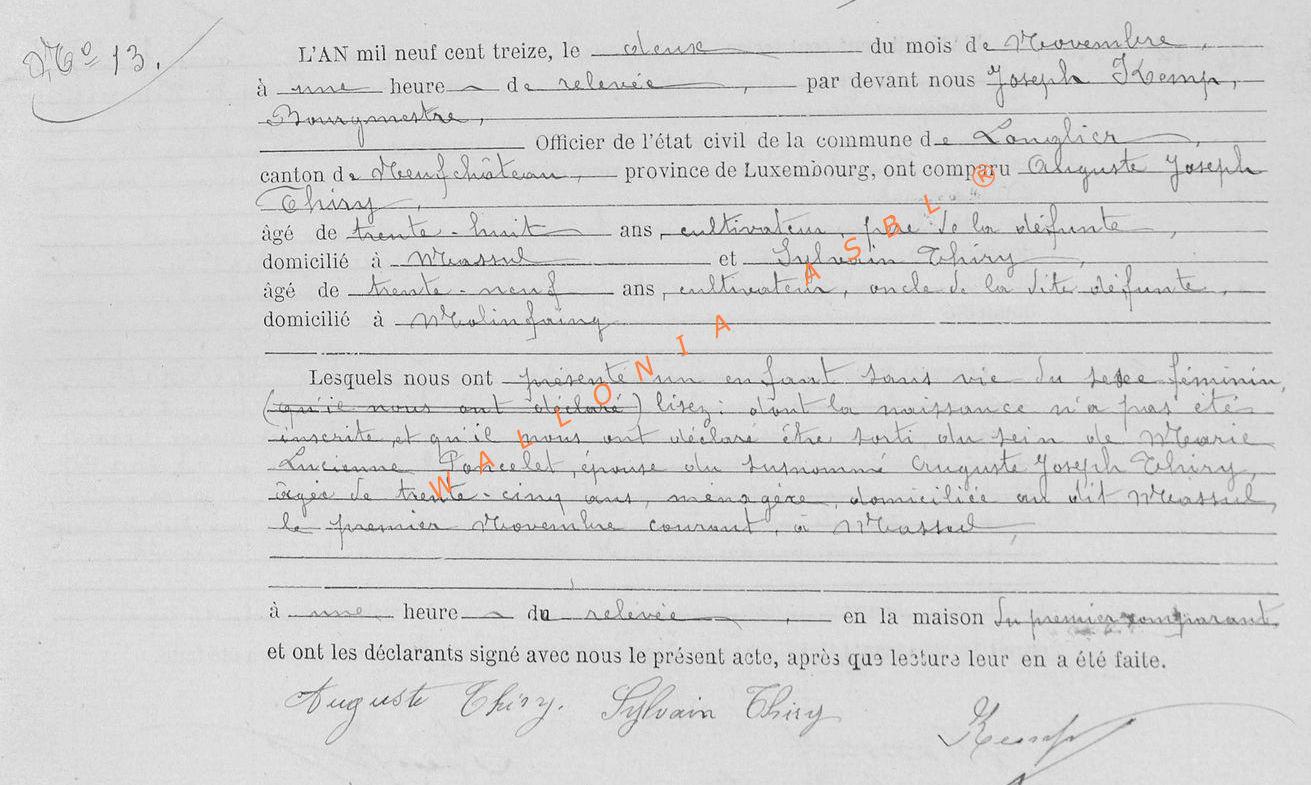 No 13.
L'AN mil neuf cent treize, le deux du mois de Novembre,
à une heure de relevée, par devant nous Joseph Kemp,
Bourgmestre,
Officier de l'état civil de la commune de Longlier,
canton de Neufchâteau, province de Luxembourg, ont comparu Auguste Joseph
Thiry,
âgé de trente-huit ans, cultivateur, père de la défunte,
domicilié à Massul et Sylvain Thiry,
âgé de trente-neuf ans, cultivateur, oncle de la dite défunte,
domicilié à Molinfaing
Lesquels nous ont présenté un enfant sans vie du sexe féminin,
(qu'il nous ont déclaré) lisez: dont la naissance n'a pas été
inscrite, et qu'il nous ont déclaré être sorti du sein de Marie
Lucienne Poncelet, épouse du susnommé Auguste Joseph Thiry,
âgée de trente-cinq ans, ménagère, domiciliée au dit Massul,
le premier Novembre courant, à Massul,
à une heure du relevée, en la maison du premier comparant,
et ont les déclarants signé avec nous le présent acte, après que lecture leur en a été faite.
Auguste Thiry. Sylvain Thiry Kemp
WALLONIA ASBL ®